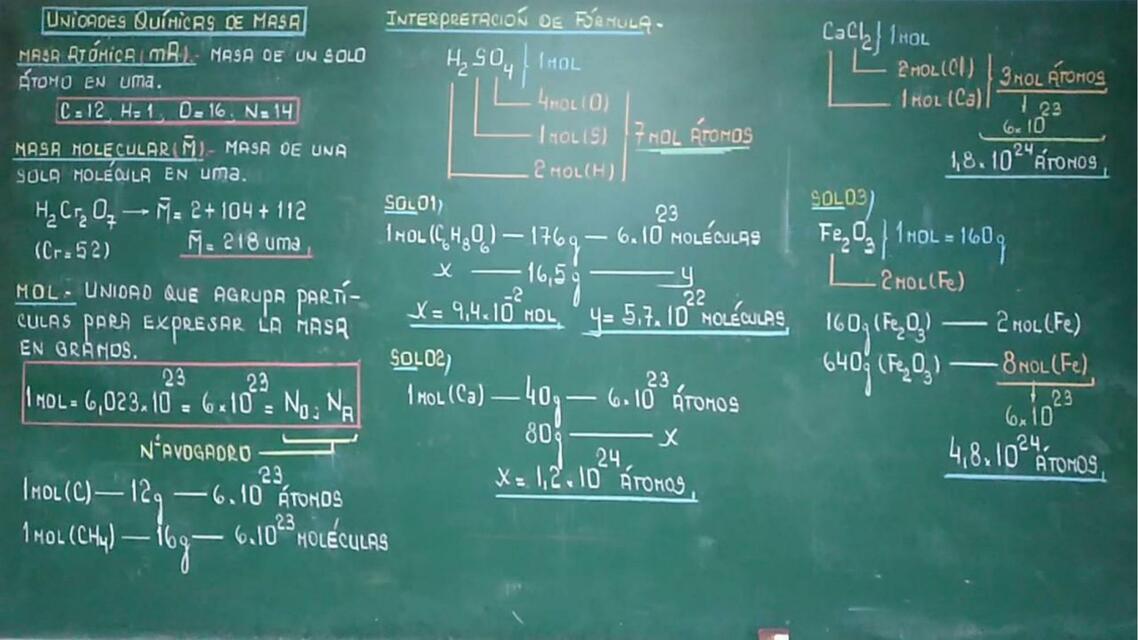 UNIDADES QUÍMICAS DE MASA
MASA ATÓMICA (mA).- MASA DE UN SOLO
ÁTOMO EN uma.
C=12, H=1, O=16, N=14
MASA MOLECULAR (M̄).- MASA DE UNA
SOLA MOLÉCULA EN uma.
H₂Cr₂O₇ → M̄ = 2+104+112
(Cr=52) M̄ = 218 uma
MOL.- UNIDAD QUE AGRUPA PARTÍ-
CULAS PARA EXPRESAR LA MASA
EN GRAMOS.
1MOL = 6,023×10²³ = 6×10²³ = N₀ ; N_A
Nº AVOGADRO
1MOL(C) — 12g — 6.10²³ ÁTOMOS
1MOL(CH₄) — 16g — 6.10²³ MOLÉCULAS
INTERPRETACIÓN DE FÓRMULA.-
H₂SO₄} 1MOL
4MOL(O)
1MOL(S)
2MOL(H)
7MOL ÁTOMOS
SOLO1)
1MOL(C₆H₈O₆) — 176g — 6.10²³ MOLÉCULAS
x — 16,5g — y
x = 9,4×10⁻² MOL y = 5,7×10²² MOLÉCULAS
SOLO2)
1MOL(Ca) — 40g — 6.10²³ ÁTOMOS
80g — x
x = 1,2×10²⁴ ÁTOMOS
CaCl₂} 1MOL
2MOL(Cl)
1MOL(Ca)
3MOL ÁTOMOS
6×10²³
1,8×10²⁴ ÁTOMOS
SOLO3)
Fe₂O₃} 1MOL = 160g
2MOL(Fe)
160g(Fe₂O₃) — 2MOL(Fe)
640g(Fe₂O₃) — 8MOL(Fe)
6×10²³
4,8×10²⁴ ÁTOMOS